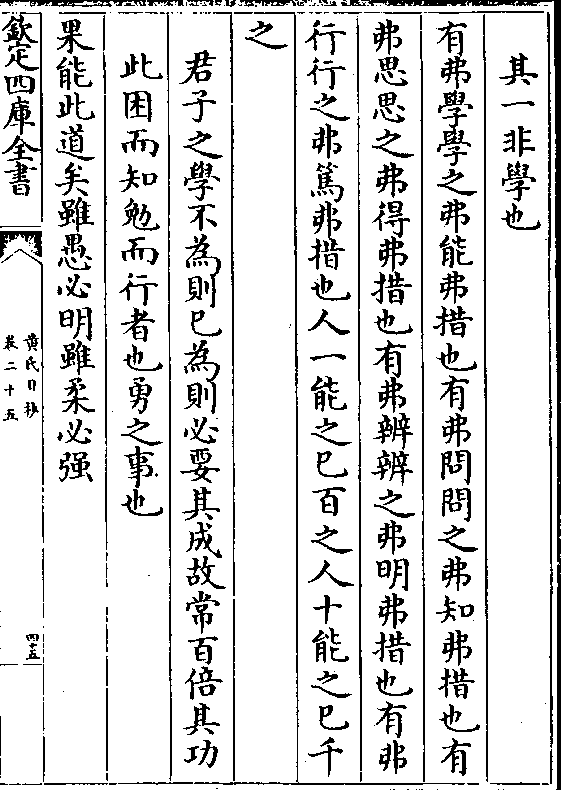 其一非學也
有弗學學之弗能弗措也有弗問問之弗知弗措也有
弗思思之弗得弗措也有弗辨辨之弗明弗措也有弗
行行之弗篤弗措也人一能之巳百之人十能之巳千
之
君子之學不為則巳為則必要其成故常百倍其功
此困而知勉而行者也勇之事也
果能此道矣雖愚必明雖柔必强
欽定四庫全書
黄氏日抄
卷二十五
四十五